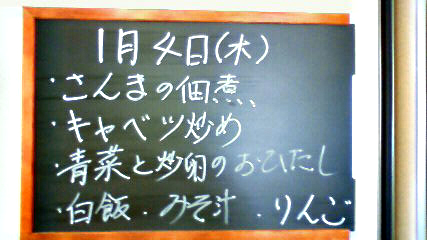 1月4日(木)
・さんまの佃煮
・キャベツ炒め
・青菜と炒卵のおひたし
・白飯・みそ汁・りんご